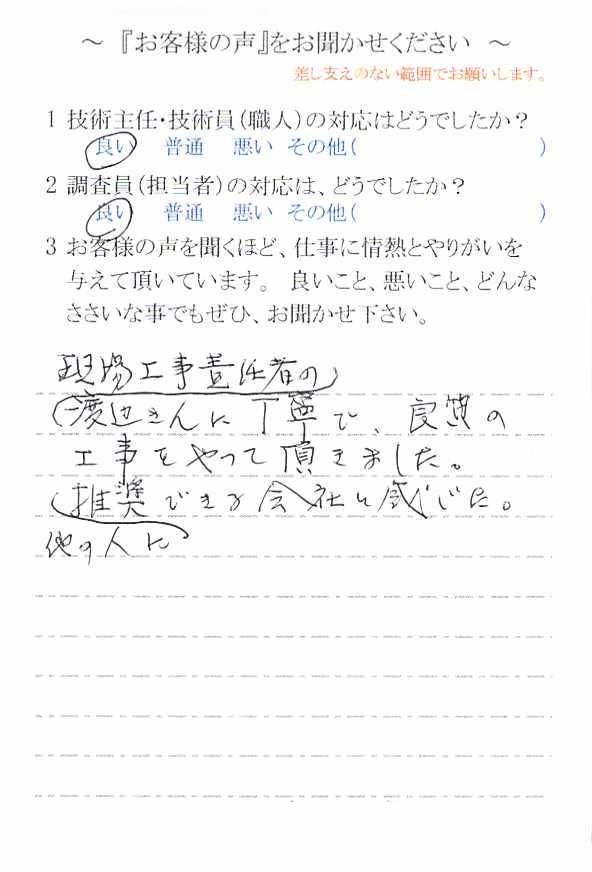 ～『お客様の声』をお聞かせください ～
差し支えのない範囲でお願いします。
1 技術主任・技術員(職人)の対応はどうでしたか?
良い 普通 悪い その他( )
2 調査員(担当者)の対応は、どうでしたか?
良い 普通 悪い その他( )
3 お客様の声を聞くほど、仕事に情熱とやりがいを
与えて頂いています。 良いこと、悪いこと、どんな
ささいな事でもぜひ、お聞かせ下さい。
現場工事責任者の
渡辺さんに丁寧で、良質の
工事をやって頂きました。
推奨できる会社と感じた。
他の人に